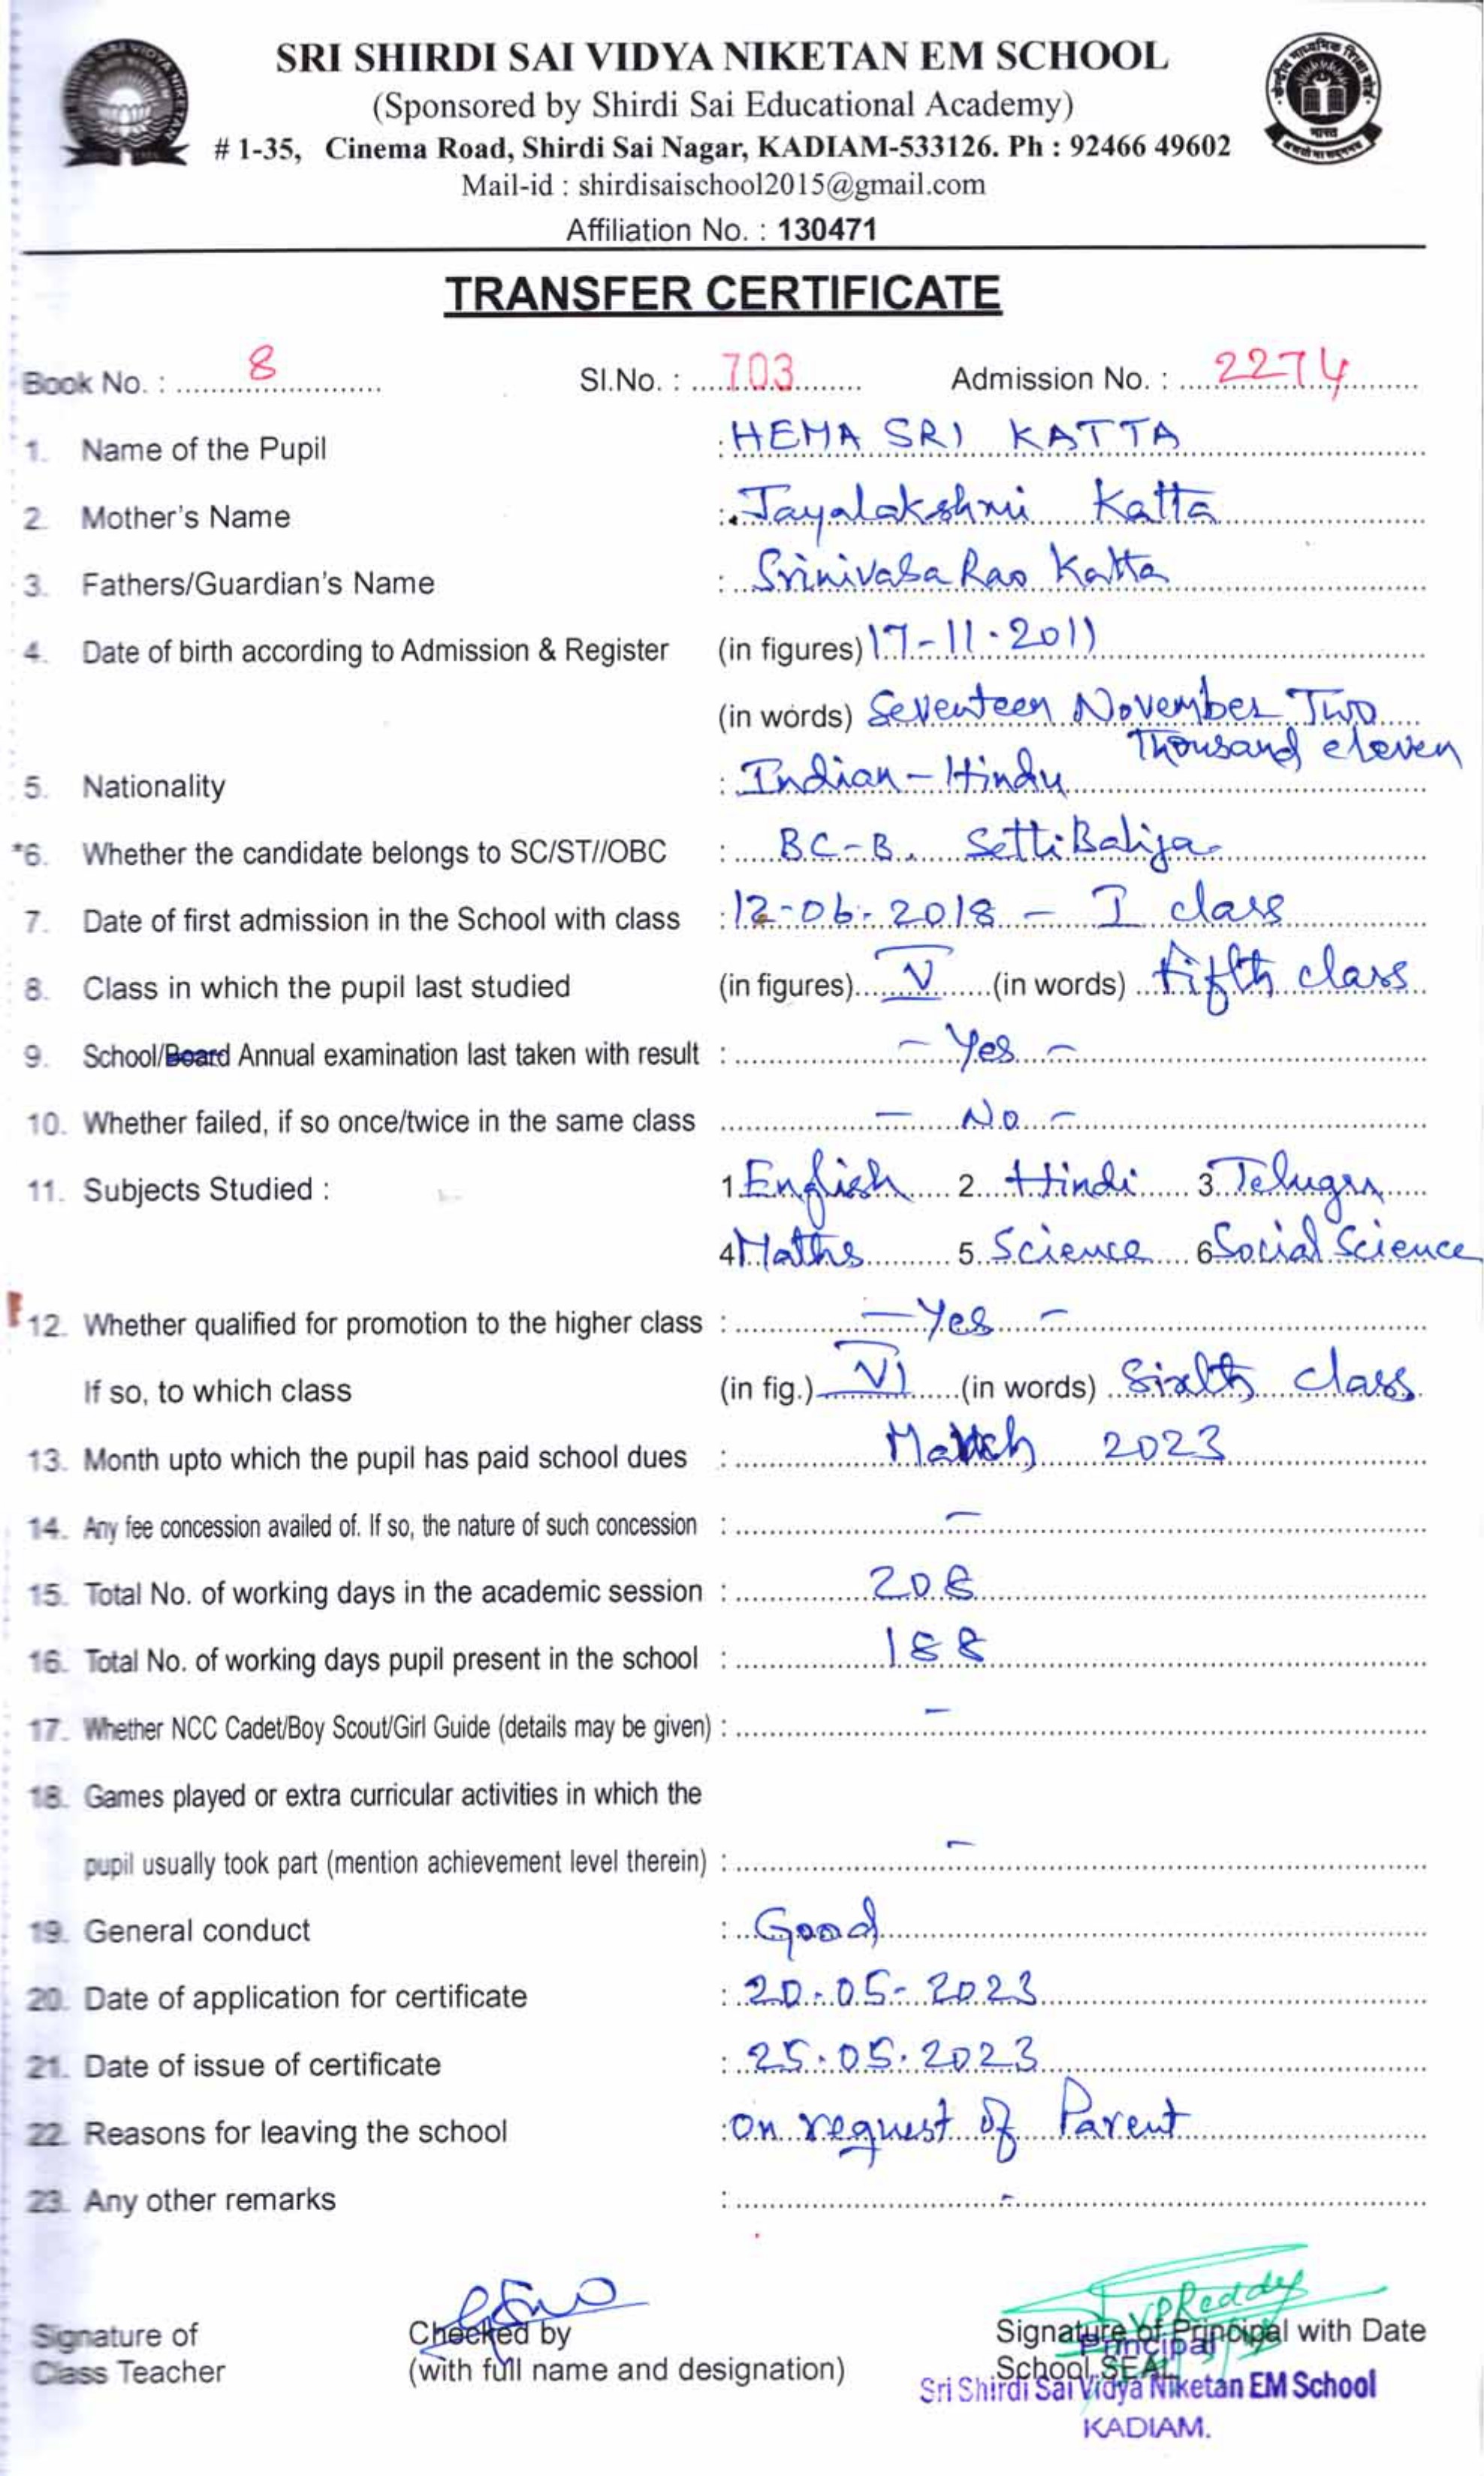 SRI SHIRDI SAI VIDYA NIKETAN EM SCHOOL
(Sponsored by Shirdi Sai Educational Academy)
# 1-35, Cinema Road, Shirdi Sai Nagar, KADIAM-533126. Ph : 92466 49602
Mail-id : shirdisaischool2015@gmail.com
Affiliation No. : 130471
TRANSFER CERTIFICATE
Book No. : 8 SI.No. : 703 Admission No. : 2274
1. Name of the Pupil : HEMA SRI KATTA
2. Mother's Name : Jayalakshmi Katta
3. Fathers/Guardian's Name : Srinivasa Rao Katta
4. Date of birth according to Admission & Register (in figures) 17-11-2011
(in words) Seventeen November Two
Thousand eleven
5. Nationality : Indian - Hindu
*6. Whether the candidate belongs to SC/ST//OBC : BC-B, Setti Balija
7. Date of first admission in the School with class : 12-06-2018 - I class
8. Class in which the pupil last studied (in figures) V (in words) Fifth class
9. School/Board Annual examination last taken with result : - Yes -
10. Whether failed, if so once/twice in the same class - No -
11. Subjects Studied : 1. English 2. Hindi 3. Telugu
4 Maths 5. Science 6 Social Science
12. Whether qualified for promotion to the higher class : - Yes -
If so, to which class (in fig.) VI (in words) Sixth class
13. Month upto which the pupil has paid school dues : March 2023
14. Any fee concession availed of. If so, the nature of such concession : -
15. Total No. of working days in the academic session : 208
16. Total No. of working days pupil present in the school : 188
17. Whether NCC Cadet/Boy Scout/Girl Guide (details may be given) : -
18. Games played or extra curricular activities in which the
pupil usually took part (mention achievement level therein) : -
19. General conduct : Good
20. Date of application for certificate : 20-05-2023
21. Date of issue of certificate : 25.05.2023
22. Reasons for leaving the school : on request of Parent
23. Any other remarks : -
Signature of Checked by Signature of Principal with Date
Principal
Class Teacher (with full name and designation) School SEAL
Sri Shirdi Sai Vidya Niketan EM School
KADIAM.